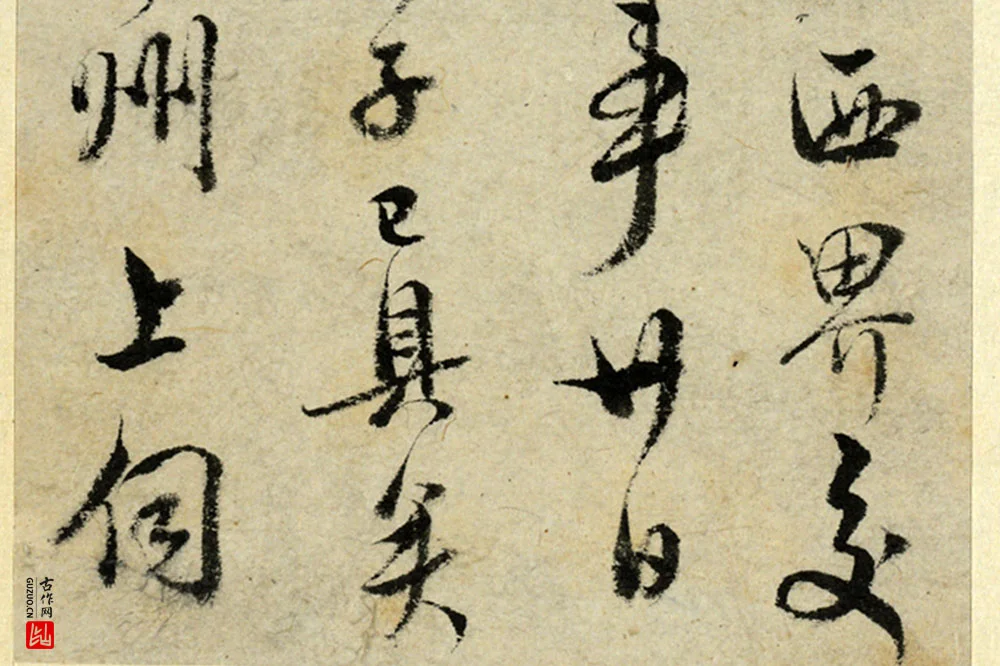 西界交
事廿日
子已具矣
州上伺
古作网
GUZUO.CN